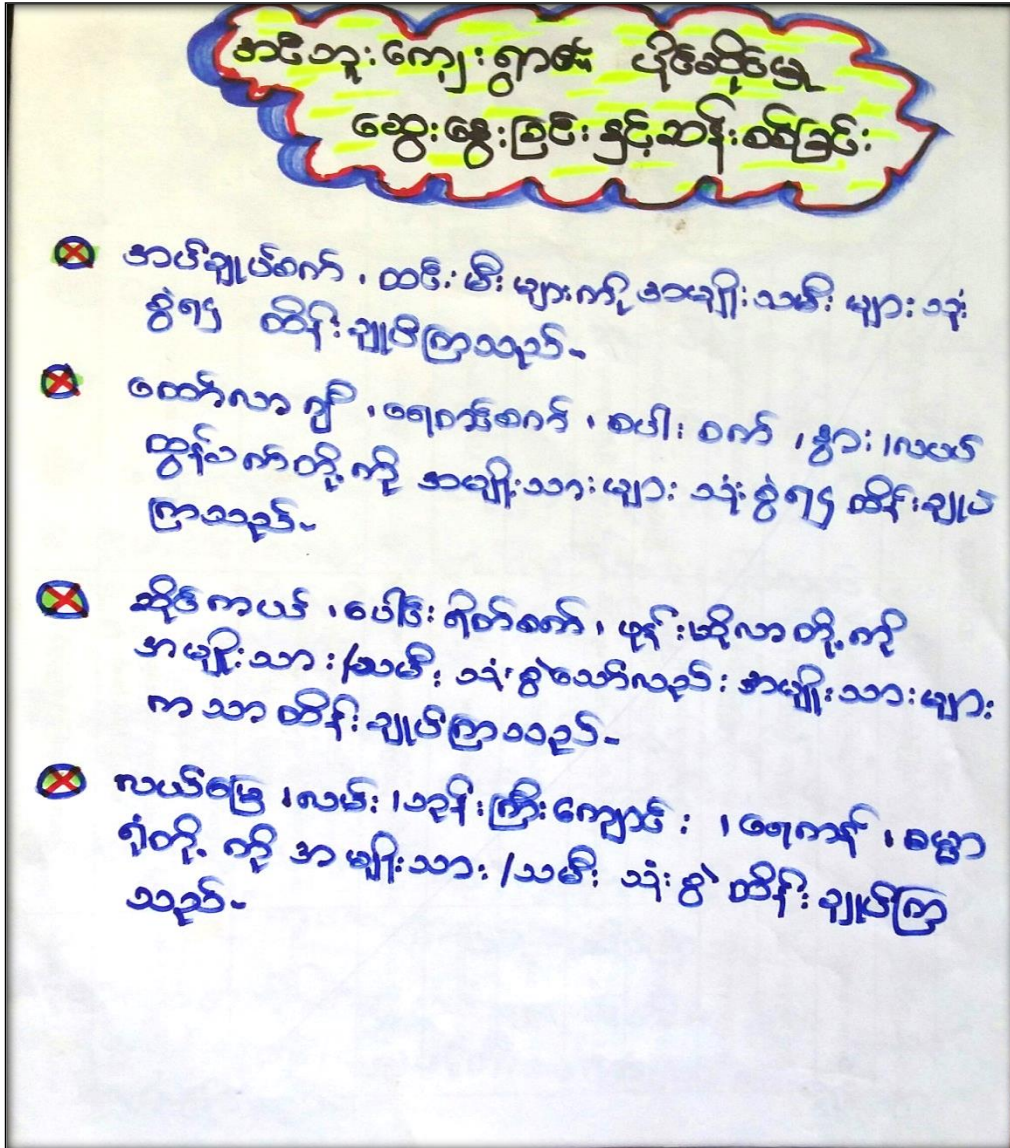 အင်ဘူးကျေးရွာ၏ ပိုင်ဆိုင်မှု
ဆွေးနွေးခြင်းနှင့်ဆန်းစစ်ခြင်း
အပ်ချုပ်စက် ၊ ထင်းမီးများကို အမျိုးသမီးများသုံး
စွဲ၍ ထိန်းချုပ်ကြသည်-
ထော်လာဂျီ ၊ ရေစုပ်စက် ၊ စပါးစက် ၊ နွား ၊ လယ်
ထွန်စက်တို့ကို အမျိုးသားများ သုံးစွဲ၍ ထိန်းချုပ်
ကြသည်-
ဆိုင်ကယ် ၊ ပေါင်းရိတ်စက် ၊ ဖုန်း ၊ ဆိုလာတို့ကို
အမျိုးသား/သမီး သုံးစွဲသော်လည်း အမျိုးသားများ
ကသာ ထိန်းချုပ်ကြသည်-
လယ်မြေ ၊ လမ်း ၊ ဘုန်းကြီးကျောင်း ၊ ရေကန် ၊ ဓမ္မာ
ရုံတို့ကို အမျိုးသား/သမီး သုံးစွဲ ထိန်းချုပ်ကြ
သည်-